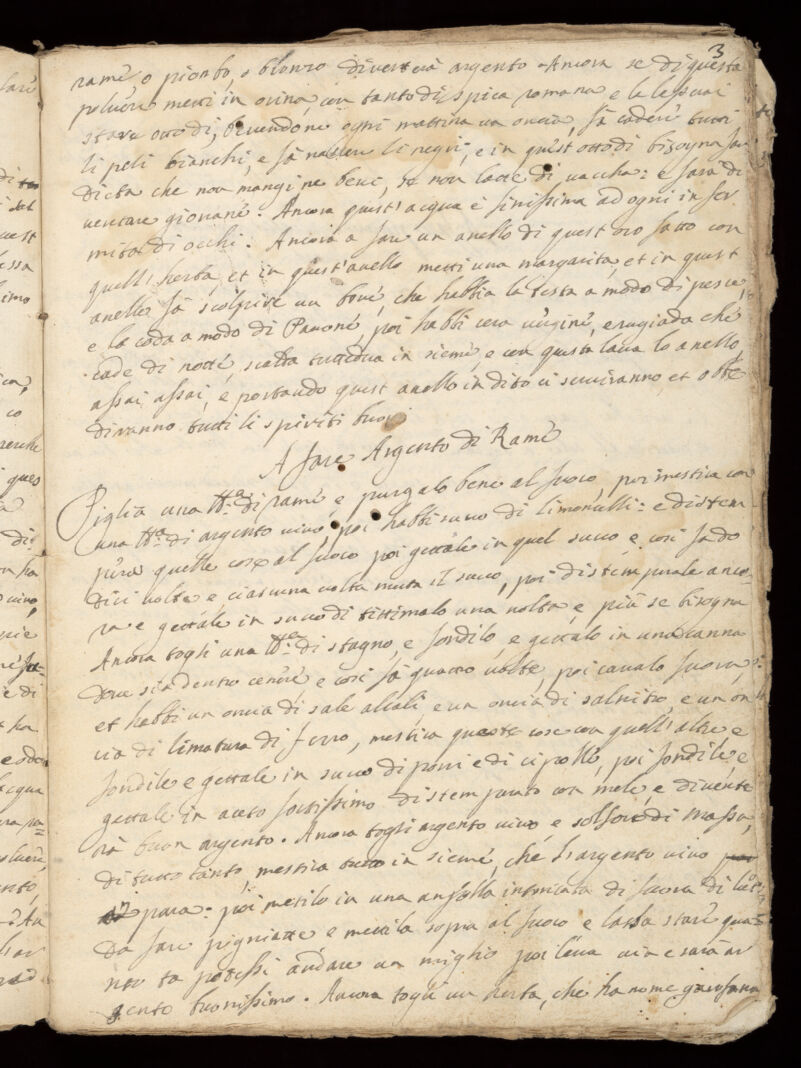 3
rame o piombo, o bronzo diventerà argento. Ancora se di questa
polvere metti in orina, con tanto di spica romana e la lessarai
stare otto dì, bevendone ogni mattina un oncia, fà cader tutti
li peli bianchi, e fà nascer li negri, e in quest otto dì bisogna far
dieta che non mangi ne bevi, se non latte di vaccha: e farà di
ventare giovane. Ancora quest'acqua è finissima ad ogni infer
mità di occhi. Ancora a fare un anello di quest oro fatto con
quell'herba, et in quest'anello metti una margarita, et in quest
anello fà scolpire un bove, che habbia la testa a modo di pesce
e la coda a modo di Pavone, poi habbi cera virgine, e rugiada che
cade di notte, scalda tuttedua insieme, e con questa lava lo anello
assai assai, e portando quest anello in dito ti serviranno et obbe
diranno tutti li spiriti buoni
A fare Argento di Rame
Piglia una ℔a di rame, e purgalo bene al fuoco, poi mestica con
una ℔a di argento vivo, poi habbi succo di limoncelli: e distem
pera quelle cose al fuoco poi gettale in quel succo e così fa do
dici volte e ciascuna volta muta il succo, poi distemperale anco
ra e gettale in succo di tittimalo una volta, e più se bisogna
Ancora togli una ℔a di stagno, e fondilo, e gettalo in una canna
dove sia dentro cenere e così fà quattro volte, poi cavalo fuora
et habbi un oncia di sale alcali, e un oncia di salnitro, e un on
cia di limatura di ferro, mestica queste cose con quell'altre e
fondile e gettale in succo di porri e di cipolle, poi fondile, e
gettale in aceto fortissimo distemperato con mele, e divente
rà buon argento. Ancora togli argento vivo e solfore di massa,
di tutto tanto mestica tutto insieme, che l'argento vivo
para: poi metilo in una ampolla intonicata di fuora di luto
da fare pigniatte e mettila sopra al fuoco e lassa stare quan
to tu potessi andare un miglio poi leva via e sarà ar
gento buonissimo. Ancora togli un herba, che ha nome